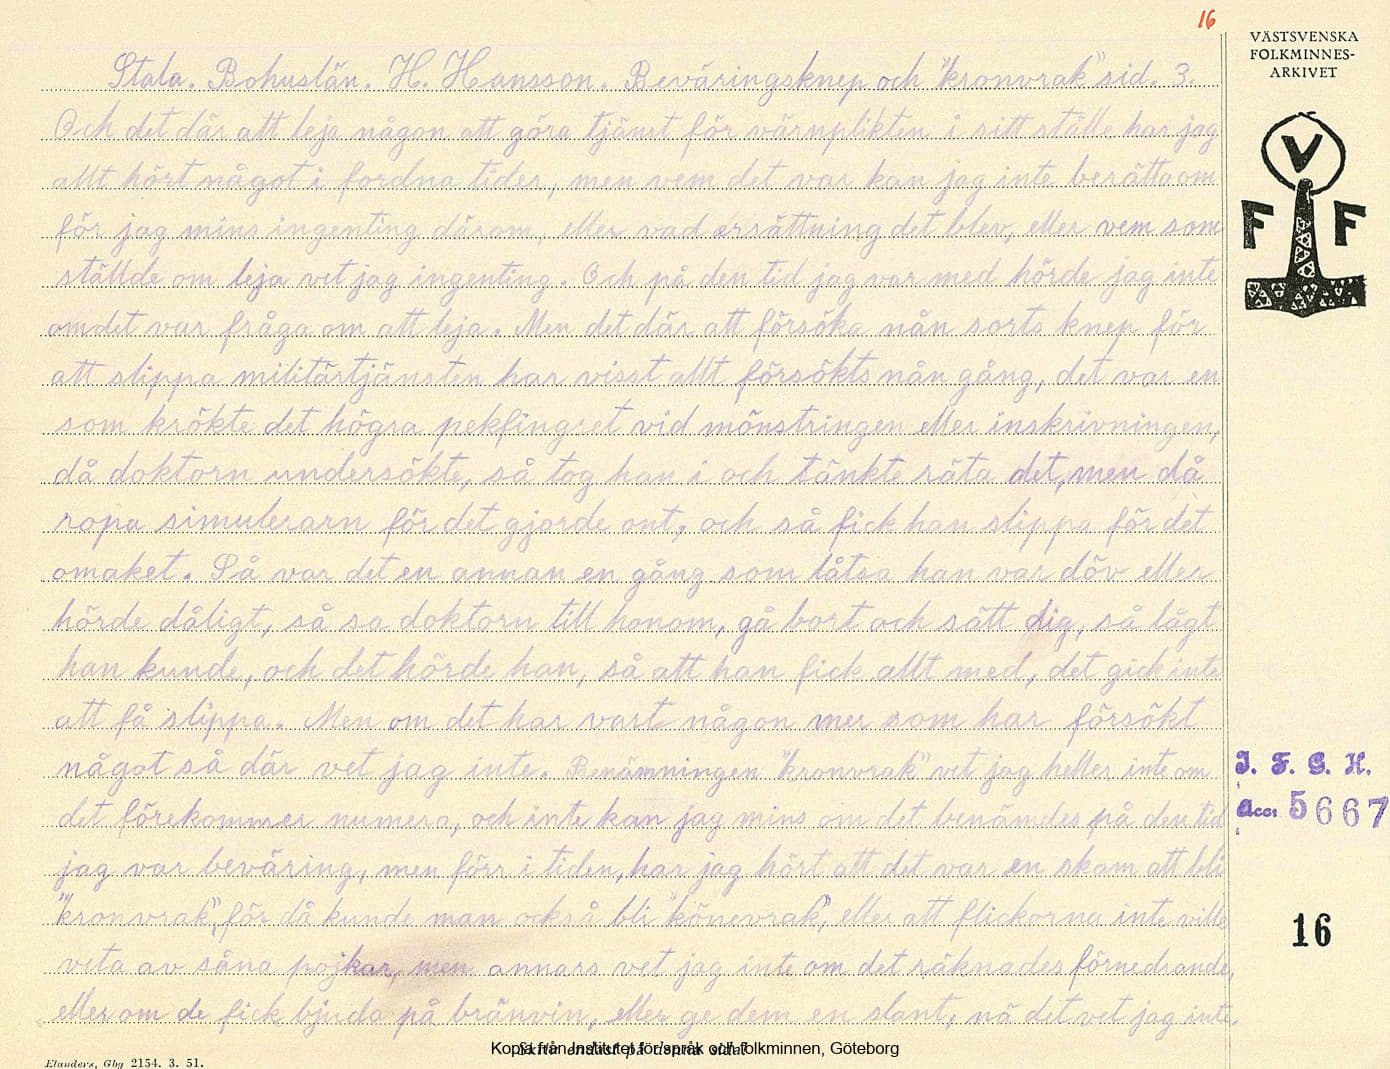 16
VÄSTSVENSKA
FOLKMINNES-
ARKIVET
V
F F
Stala. Bohuslän. H. Hansson. Beväringsknep och "kronvrak" sid. 3.
Och det där att leja någon att göra tjänst för värnplikten i sitt ställe har jag
allt hört något i fordna tider, men vem det var kan jag inte berätta om
för jag mins ingenting därom, eller vad ersättning det blev, eller vem som
ställde om leja vet jag ingenting. Och på den tid jag var med hörde jag inte
om det var fråga om att leja. Men det där att försöka nån sorts knep för
att slippa militärtjänsten har visst allt försökts nån gång, det var en
som krökte det högra pekfingret vid mönstringen eller inskrivningen,
då doktorn undersökte, så tog han i och tänkte räta det, men då
ropa simulerarn för det gjorde ont, och så fick han slippa för det
omaket. Så var det en annan en gång som låtsa han var döv eller
hörde dåligt, så sa doktorn till honom, gå bort och sätt dig, så lågt
han kunde, och det hörde han, så att han fick allt med, det gick inte
att få slippa. Men om det har vart någon mer som har försökt
något så där vet jag inte. Benämningen "kronvrak" vet jag heller inte om
det förekommer numera, och inte kan jag mins om det benämdes på den tid
jag var beväring, men förr i tiden, har jag hört att det var en skam att bli
"kronvrak", för då kunde man också bli "könevrak", eller att flickorna inte ville
veta av såna pojkar, men annars vet jag inte om det räknades förnedrande,
eller om de fick bjuda på bränvin, eller ge dem en slant, nä det vet jag inte.
I. F. G. H.
Acc: 5667
16
Skriv endast på denna sida!
Kopia från Institutet för språk och folkminnen, Göteborg
Elanders, Gbg 2154. 3. 51.